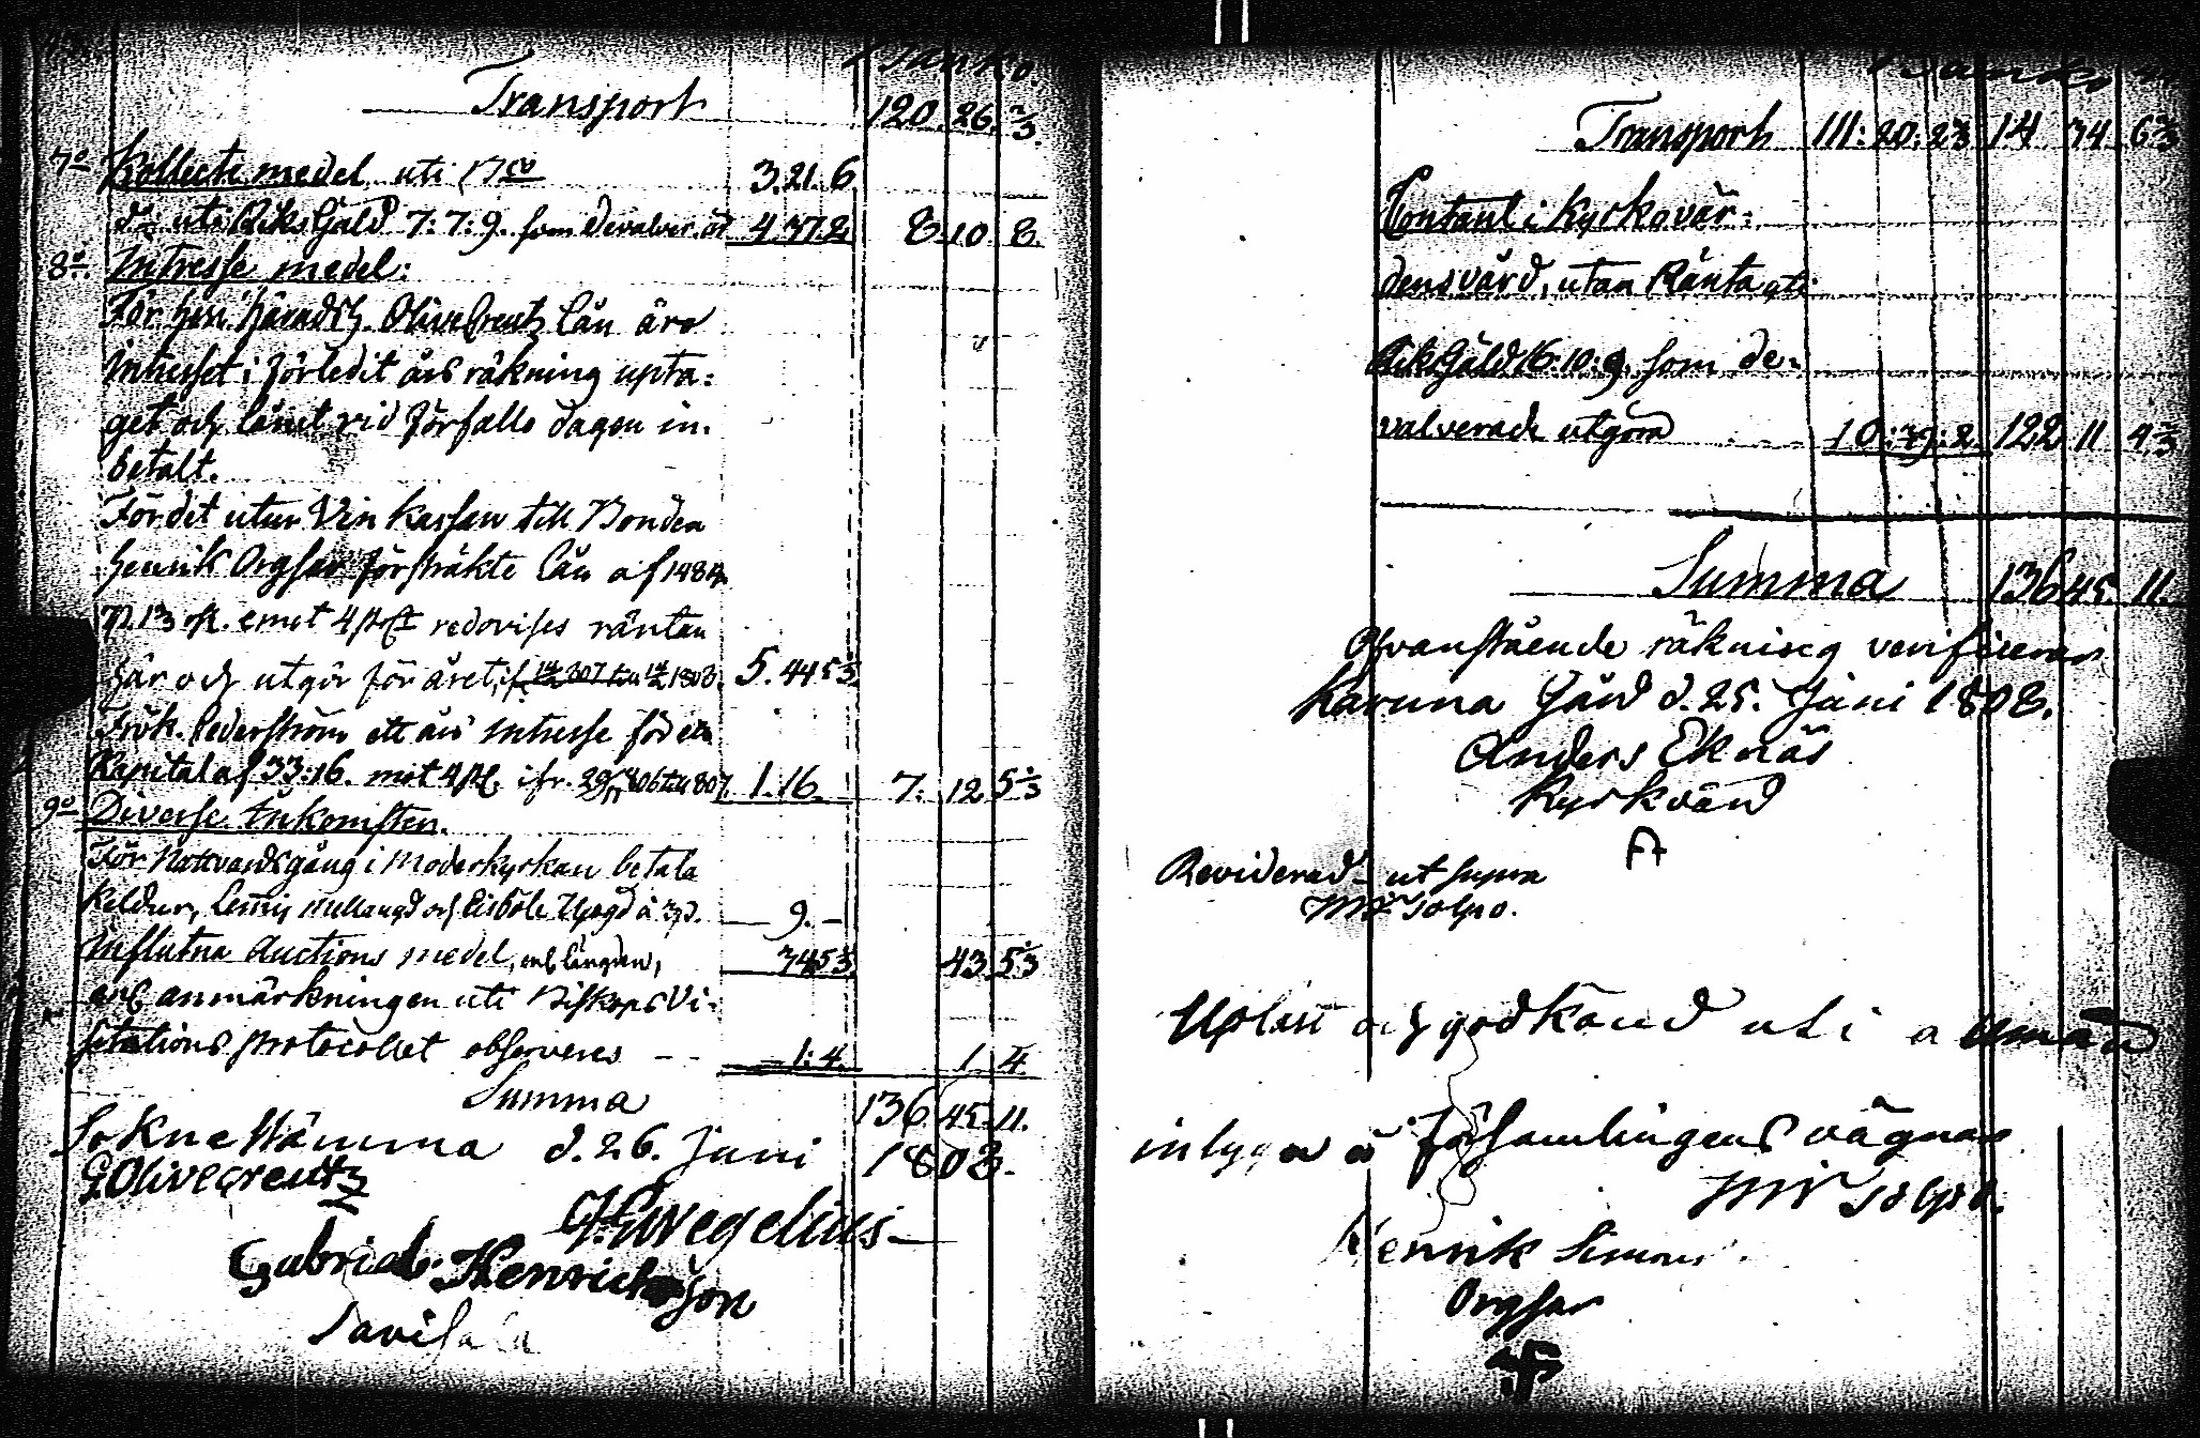 Banko.
Transport 120. 26. 2/3.
7o Kollecte medel uti Bco 3. 21. 6.
do uti Riks Gäld 7: 7: 9. som devalver. är 4. 37. 2. 8. 10. 8.
8o. Intresse medel:
För Herr Häradsh. Olivecreutz lån äro
Intresset i förledit års räkning upta-
get och lånet vid förfallo dagen in-
betalt.
Fördit utur Vin Kassan till Bonden
Henrik Orgsar försträkte lån af 148 R.
13 emot 4 redovises räntan
här och utgör för året 1808. 5. 44. 5 1/3
Frök. Cederström ett års Intresse för ett
Kapital af 33: 16. mot 4 ifr. 806 till 807. 1. 16. 7. 12. 5 1/3
9o Diverse Inkomsten.
För Nattvardsgång i Moderkyrkan betala
Keldur, Lemis och à 3 9. -
Influtna Auctions medel, enl. längden, 34 5 1/3 43. 5 1/3
enl. anmärkningen uti Biskops Vi-
sitations Protocollet observeres - - 1: 4. 1. 4.
Summa 136. 45. 11.
Sokne Stämma d. 26. Juni 1808.
G Olivecreutz
Wegelius
Gabriel Henrichsson
Savisa
Banko
Transport 111: 20. 23 14. 34. 6 2/3
Contant i Kyrkovär-
dens vård, utan Ränta uti
Riksgäld 16: 10: 9. som de-
valverade utgöra 10: 39: 2. 122. 11. 4 1/3
Summa 136. 45. 11.
Ofvanstående räkning verificeras
Karuna Gård d. 25. Juni 1808.
Anders Eknäs
Kyrkvärd
Reviderad ut supra
Upläst och godkänd uti allmän
intygar å Församlingens vägnar
Henrik Simons
Orgsar